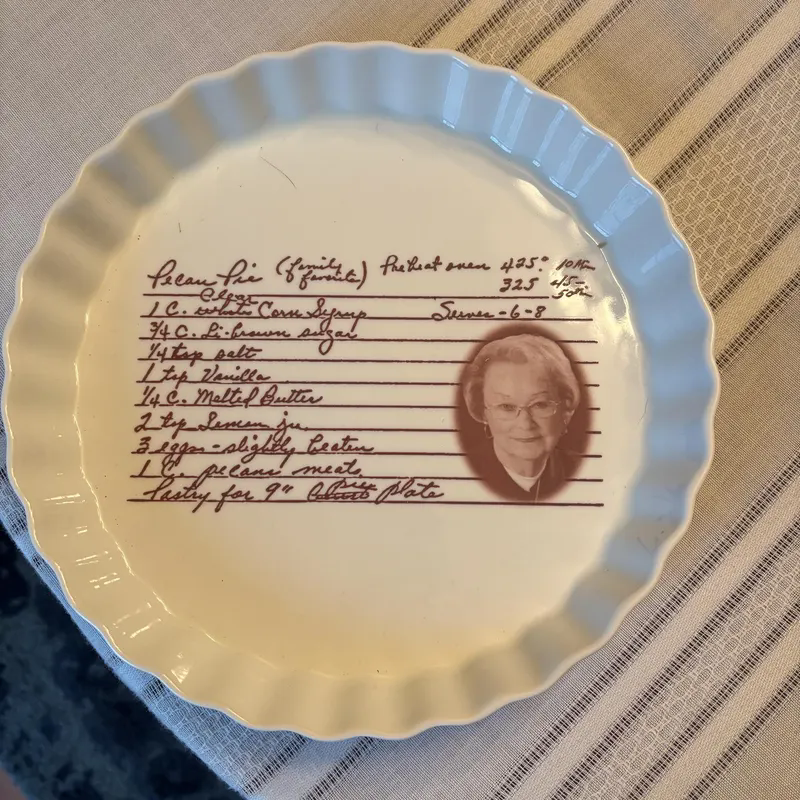 Pecan Pie (family favorite) PreHeat oven 425° 10 Min
325 45-50 Min
Clear
1 C. white Corn Syrup Serves-6-8
3/4 C. Li-brown sugar
1/4 tsp salt
1 tsp Vanilla
1/4 C. Melted Butter
2 tsp Lemon ju.
3 eggs - slightly beaten
1 C. pecans meats
Pastry for 9" pie plate